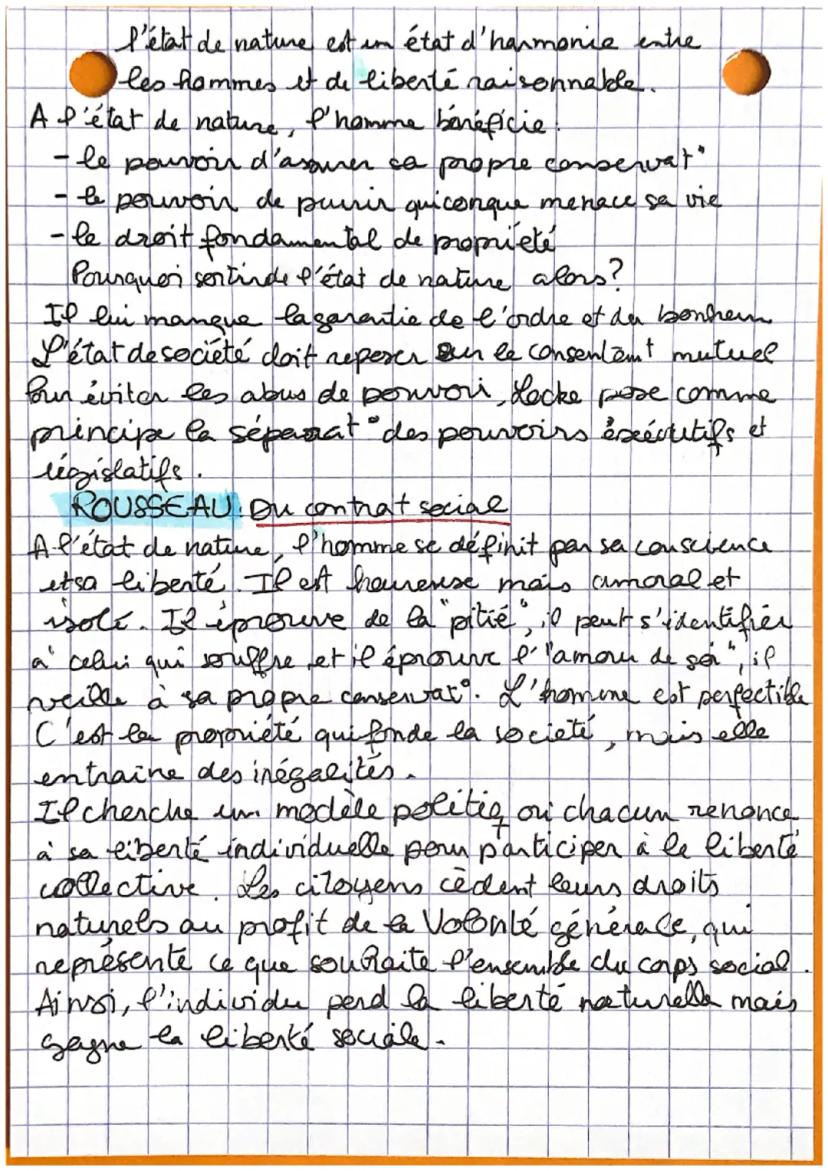 l'état de nature est un état d'harmonie entre
les hommes et de liberté raisonnable.
A l'état de nature, l'homme bénéficie :
- le pouvoir d'assurer sa propre conservat°
- le pouvoir de punir quiconque menace sa vie
- le droit fondamental de propriété
Pourquoi sortir de l'état de nature alors?
Il lui manque la garantie de l'ordre et du bonheur
L'état de société doit reposer sur le consentemt mutuel
Pour éviter les abus de pouvoir, Locke pose comme
principe la séparat° des pouvoirs éxécutifs et
législatifs.
ROUSSEAU: Du contrat social
A l'état de nature, l'homme se définit par sa conscience
et sa liberté. Il est heureuse mais amoral et
isolé. Il éprouve de la "pitié", il peut s'identifier
à celui qui souffre et il éprouve l'"amour de soi", il
veille à sa propre conservat°. L'homme est perfectible
C'est la propriété qui fonde la société, mais elle
entraine des inégalités.
Il cherche un modèle politiq où chacun renonce
à sa liberté individuelle pour participer à la liberté
collective. Les citoyens cèdent leurs droits
naturels au profit de la Volonté générale, qui
représente ce que souhaite l'ensemble du corps social.
Ainsi, l'individu perd la liberté naturelle mais
gagne la liberté sociale.